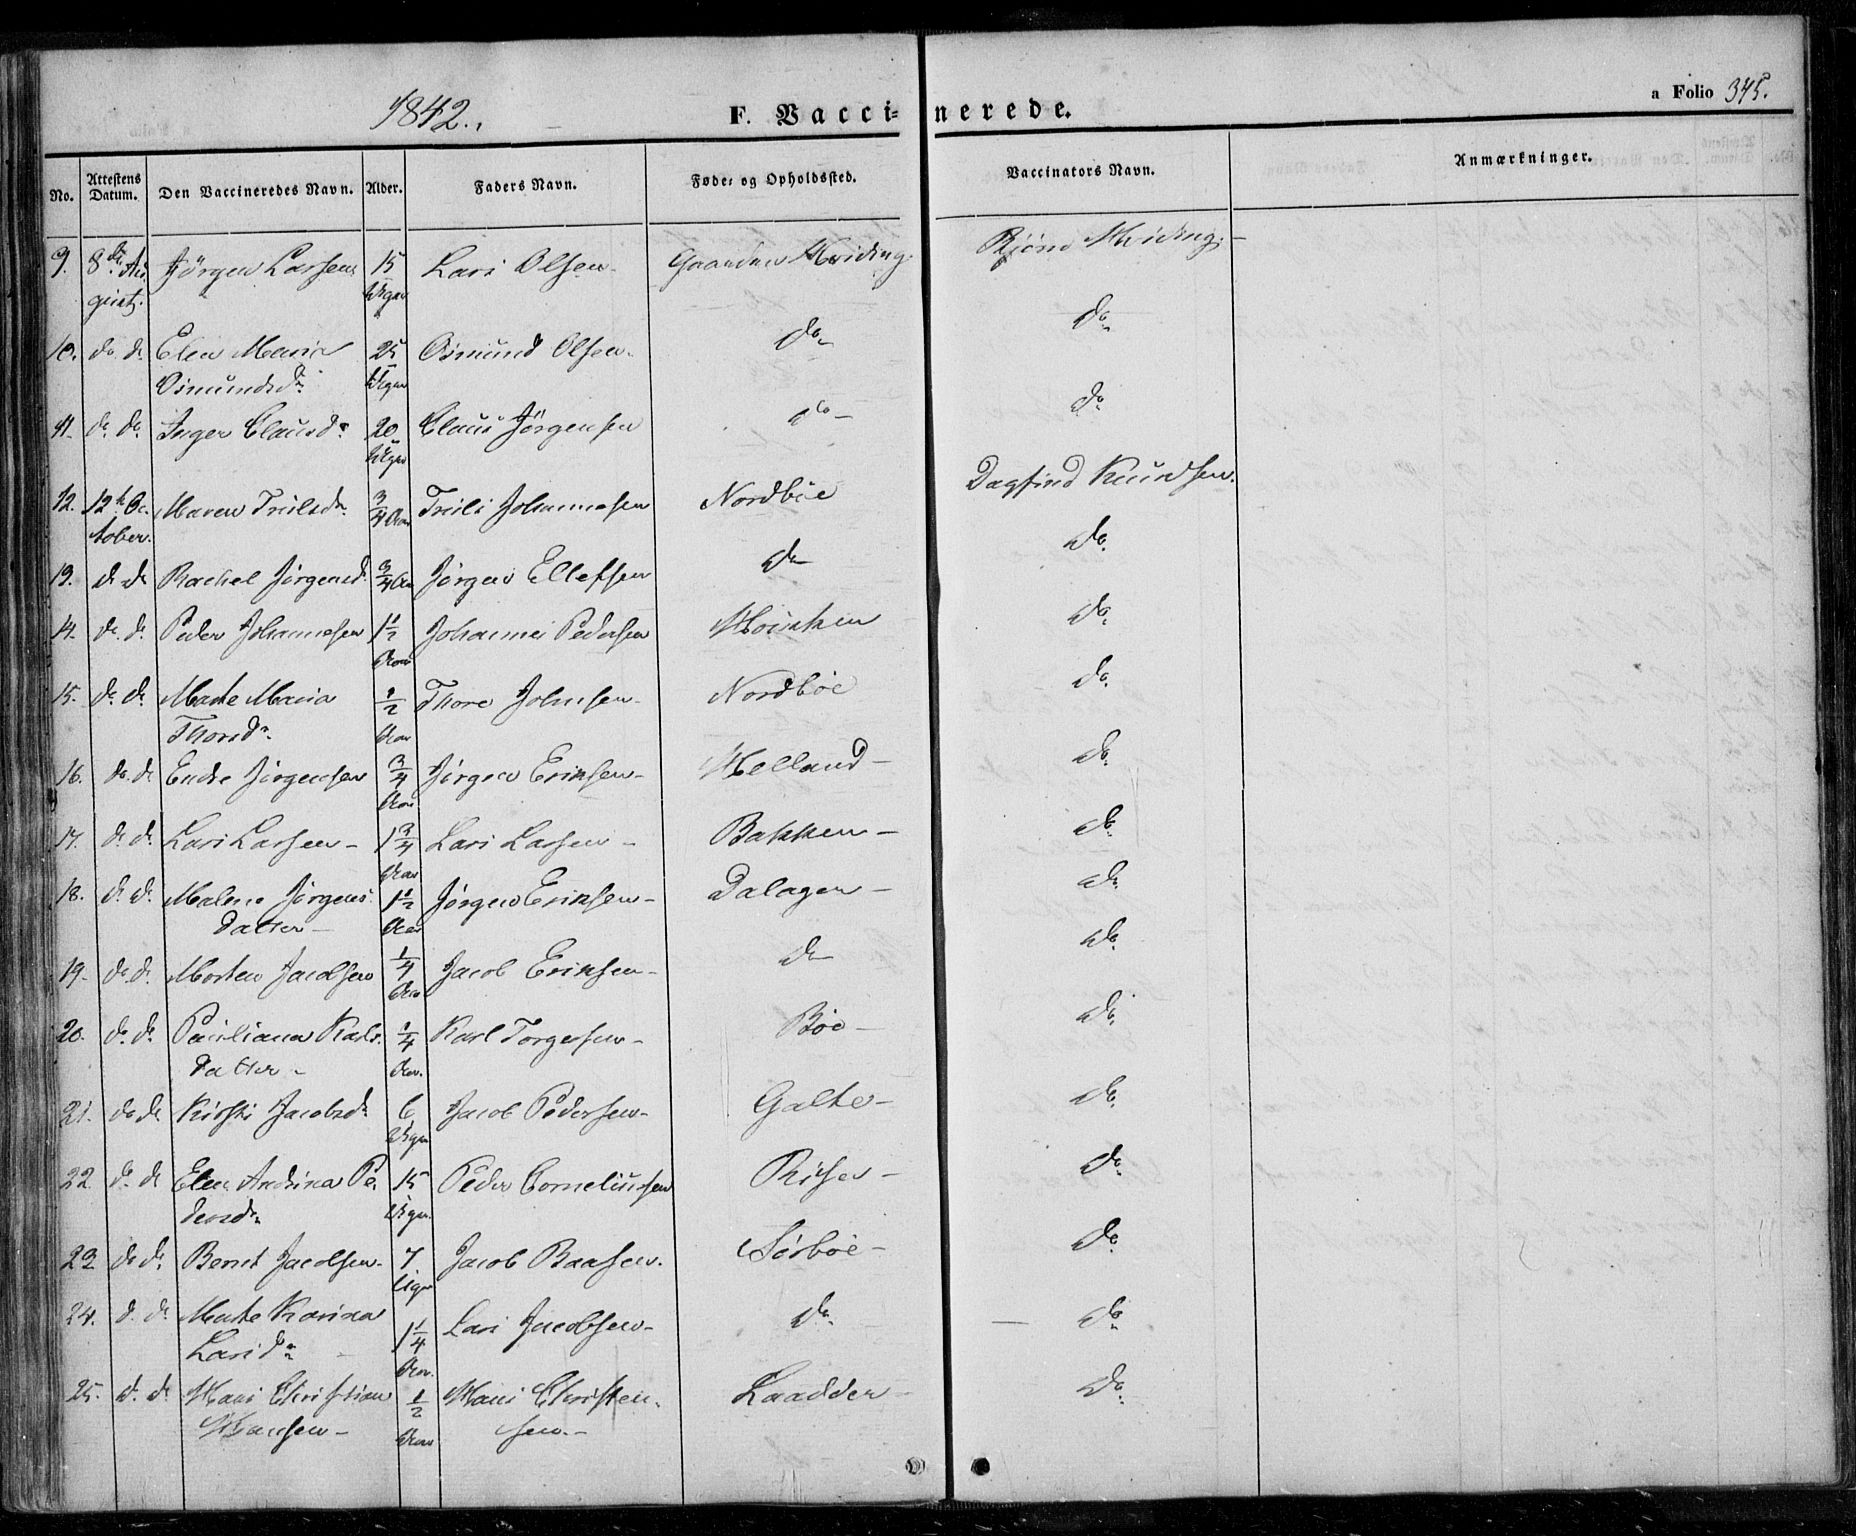 1842.
F. Vaccinerede.
a Folio 345.
No. Attestens Datum. Den Vaccineredes Navn. Alder. Faders Navn. Føde- og Opholdssted. Vaccinators Navn. Anmærkninger.
9. 8de August. Jørgen Larsen 15 Uger Lars Olsen Hviding Bjørn Hviding
10. do do Elen Maria Osmundsdr 25 Uger Osmund Olsen do do
11. do do Inger Clausdr 20 Uger Claus Jørgensen do do
12. 12te October. Maren Trulsdr 3/4 Aar Truls Johannesen Nordbøe Dagfind Knudsen.
13. do do Rachel Jørgensd. 3/4 Aar Jørgen Ellefsen do do
14. do do Peder Johannesen 1 1/2 Aar Johannes Pedersen do
15. do do Marte Maria Thorsdr 1/2 Aar Thore Johnsen Nordbøe do
16. do do Endre Jørgensen 3/4 Aar Jørgen Eriksen Helland do
17. do do Lars Larsen 1 3/4 Aar Lars Larsen Bakken do
18. do do Malene Jørgensdatter 1 1/2 Aar Jørgen Eriksen Dalagen do
19. do do Morten Jacobsen 1/4 Aar Jacob Eriksen do do
20. do do Pauliana Karlsdatter 1/4 Aar. Karl Torgersen Bøe do
21. do do Kirsti Jacobsdr 6 Uger Jacob Pedersen Galte do
22 do do Elen Andrina Pedersdr 15 Uger. Peder Corneliussen do
23 do do Bernt Jacobsen 7 Uger Jacob Baasen. Sørbøe do
24. do do Marte Karina Larsdr 1 1/4 Aar. Lars Jacobsen do do
25. do do Hans Christian Hansen 1/2 Aar Hans Christensen Laadder do